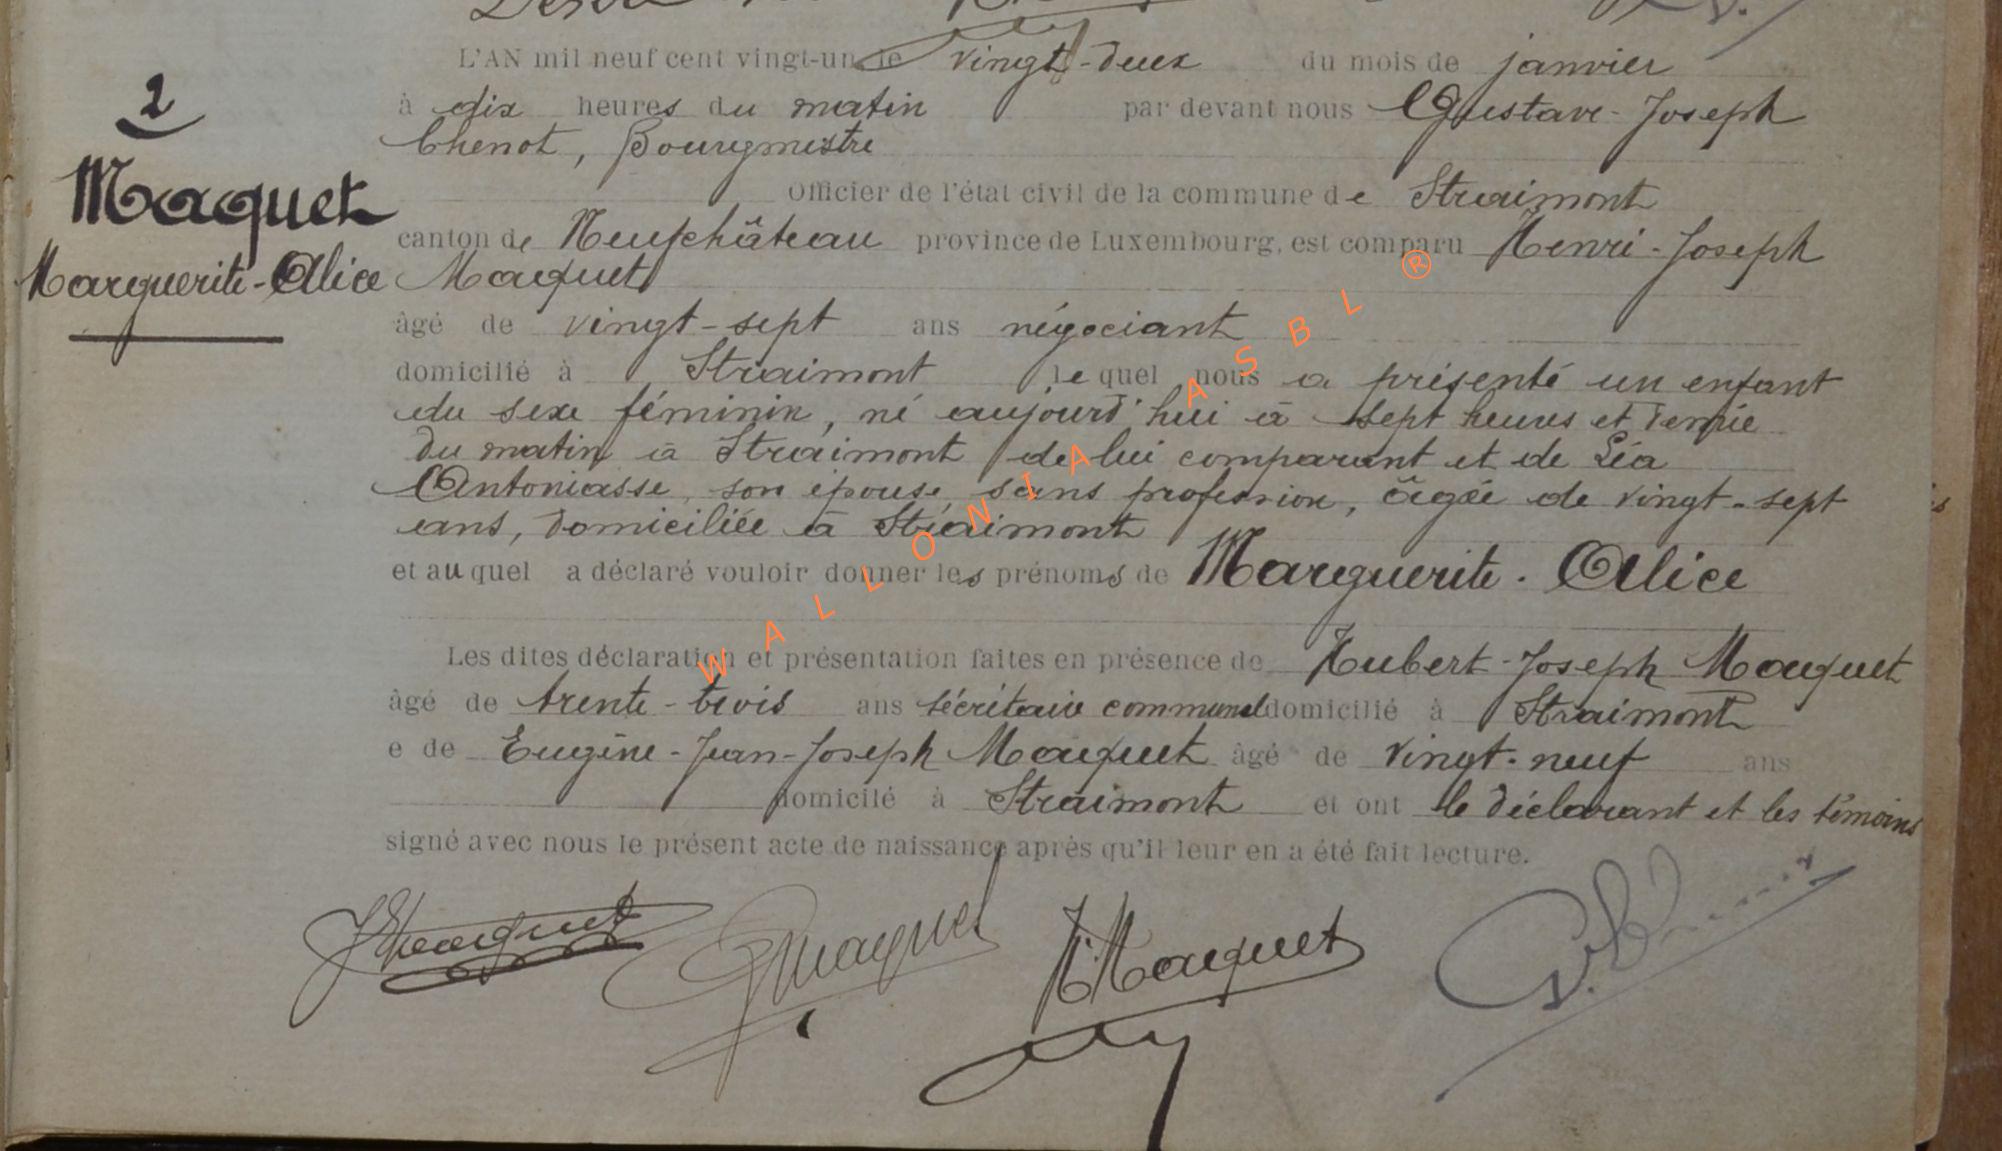 2
Maquet
Marguerite-Alice
L'AN mil neuf cent vingt-un le vingt-deux du mois de janvier
à dix heures du matin par devant nous Gustave-Joseph
Chenot, Bourgmestre
Officier de l'état civil de la commune de Straimont
canton de Neufchâteau province de Luxembourg, est comparu Henri-Joseph
Maquet
âgé de vingt-sept ans négociant
domicilié à Straimont lequel nous a présenté un enfant
du sexe féminin, né aujourd'hui à sept heures et demie
du matin à Straimont de lui comparant et de Léa
Antoniasse, son épouse, sans profession, âgée de vingt-sept
ans, domiciliée à Straimont
et auquel a déclaré vouloir donner les prénoms de Marguerite-Alice
Les dites déclaration et présentation faites en présence de Hubert-Joseph Maquet
âgé de trente-trois ans sécrétaire communal domicilié à Straimont
e de Eugène-Jean-Joseph Maquet âgé de vingt-neuf ans
domicilé à Straimont et ont le déclarant et les témoins
signé avec nous le présent acte de naissance après qu'il leur en a été fait lecture.
Maquet Maquet H. Maquet
WALLONIA ASBL ®